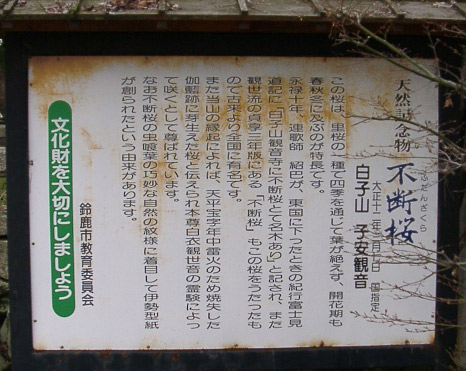 天然記念物
不断桜
ふだんざくら
大正十二年三月七日 国指定
白子山 子安観音
この桜は、里桜の一種で四季を通じて葉が絶えず、開花期も
春秋冬に及ぶのが特長です。
永禄十年、連歌師 紹巴が、東国に下ったときの紀行富士見
道記に「白子山観音寺に不断桜とて名木あり」と記され、また
観世流の貞享三年版にある「不断桜」もこの桜をうたったも
ので古来より全国に有名です。
また当山の縁起によれば、天平宝字年中雷火のため焼失した
伽藍跡に芽生えた桜と伝えられ本尊白衣観世音の霊験によっ
て咲くとして尊ばれています。
なお不断桜の虫喰葉の巧妙な自然の紋様に着目して伊勢型紙
が創られたという由来があります。
鈴鹿市教育委員会
文化財を大切にしましょう